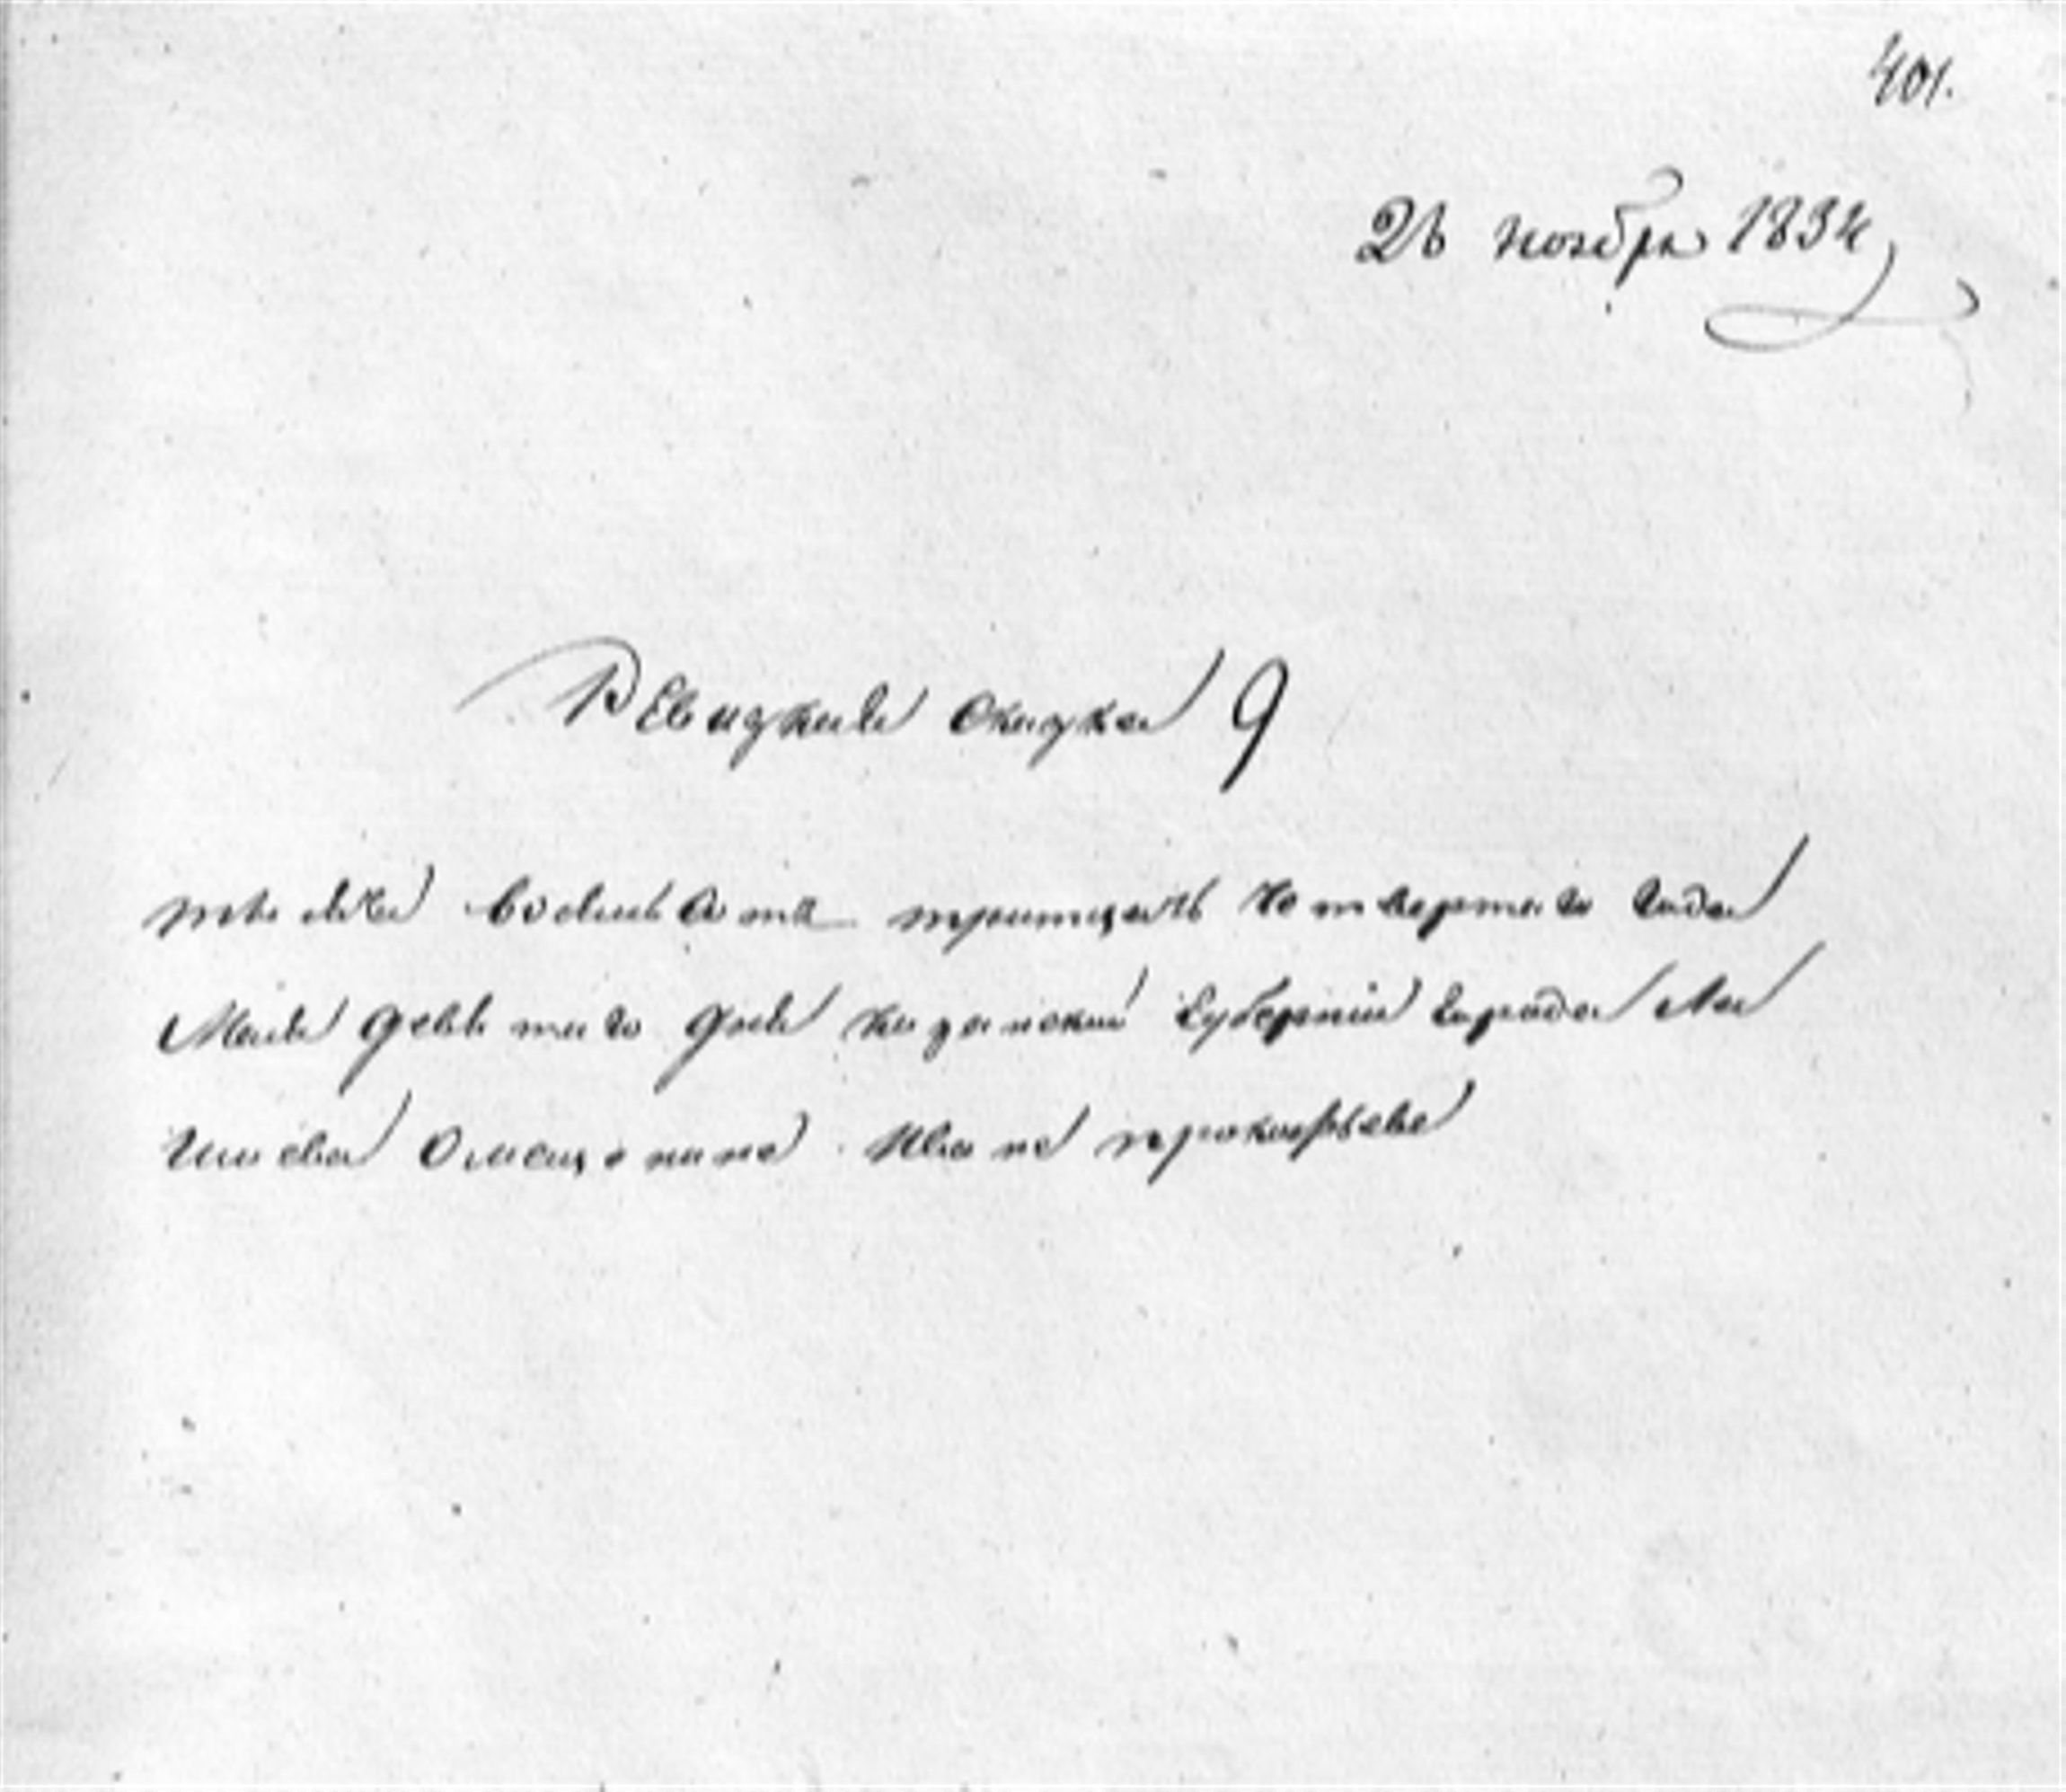 401.
26 ноября 1834
Ревизкая Скаска 9
тысяча восемьсота тритцать четвертаго года
Маия девятаго дня казанской губернии города Ла
ишева Омещанина Ивана прокофьева